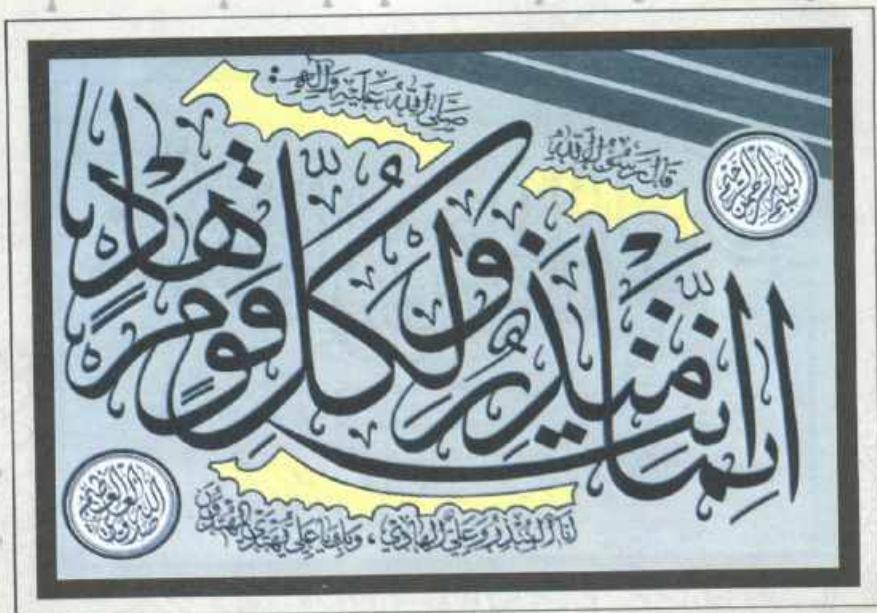 بسم الله الرحمن الرحيم
قال رسول الله
صلى الله عليه وآله:
إنما أنت منذر ولكل قوم هاد
أنا المنذر وعلي الهادي، وبك يا علي يهتدي المهتدون
صدق الله العلي العظيم